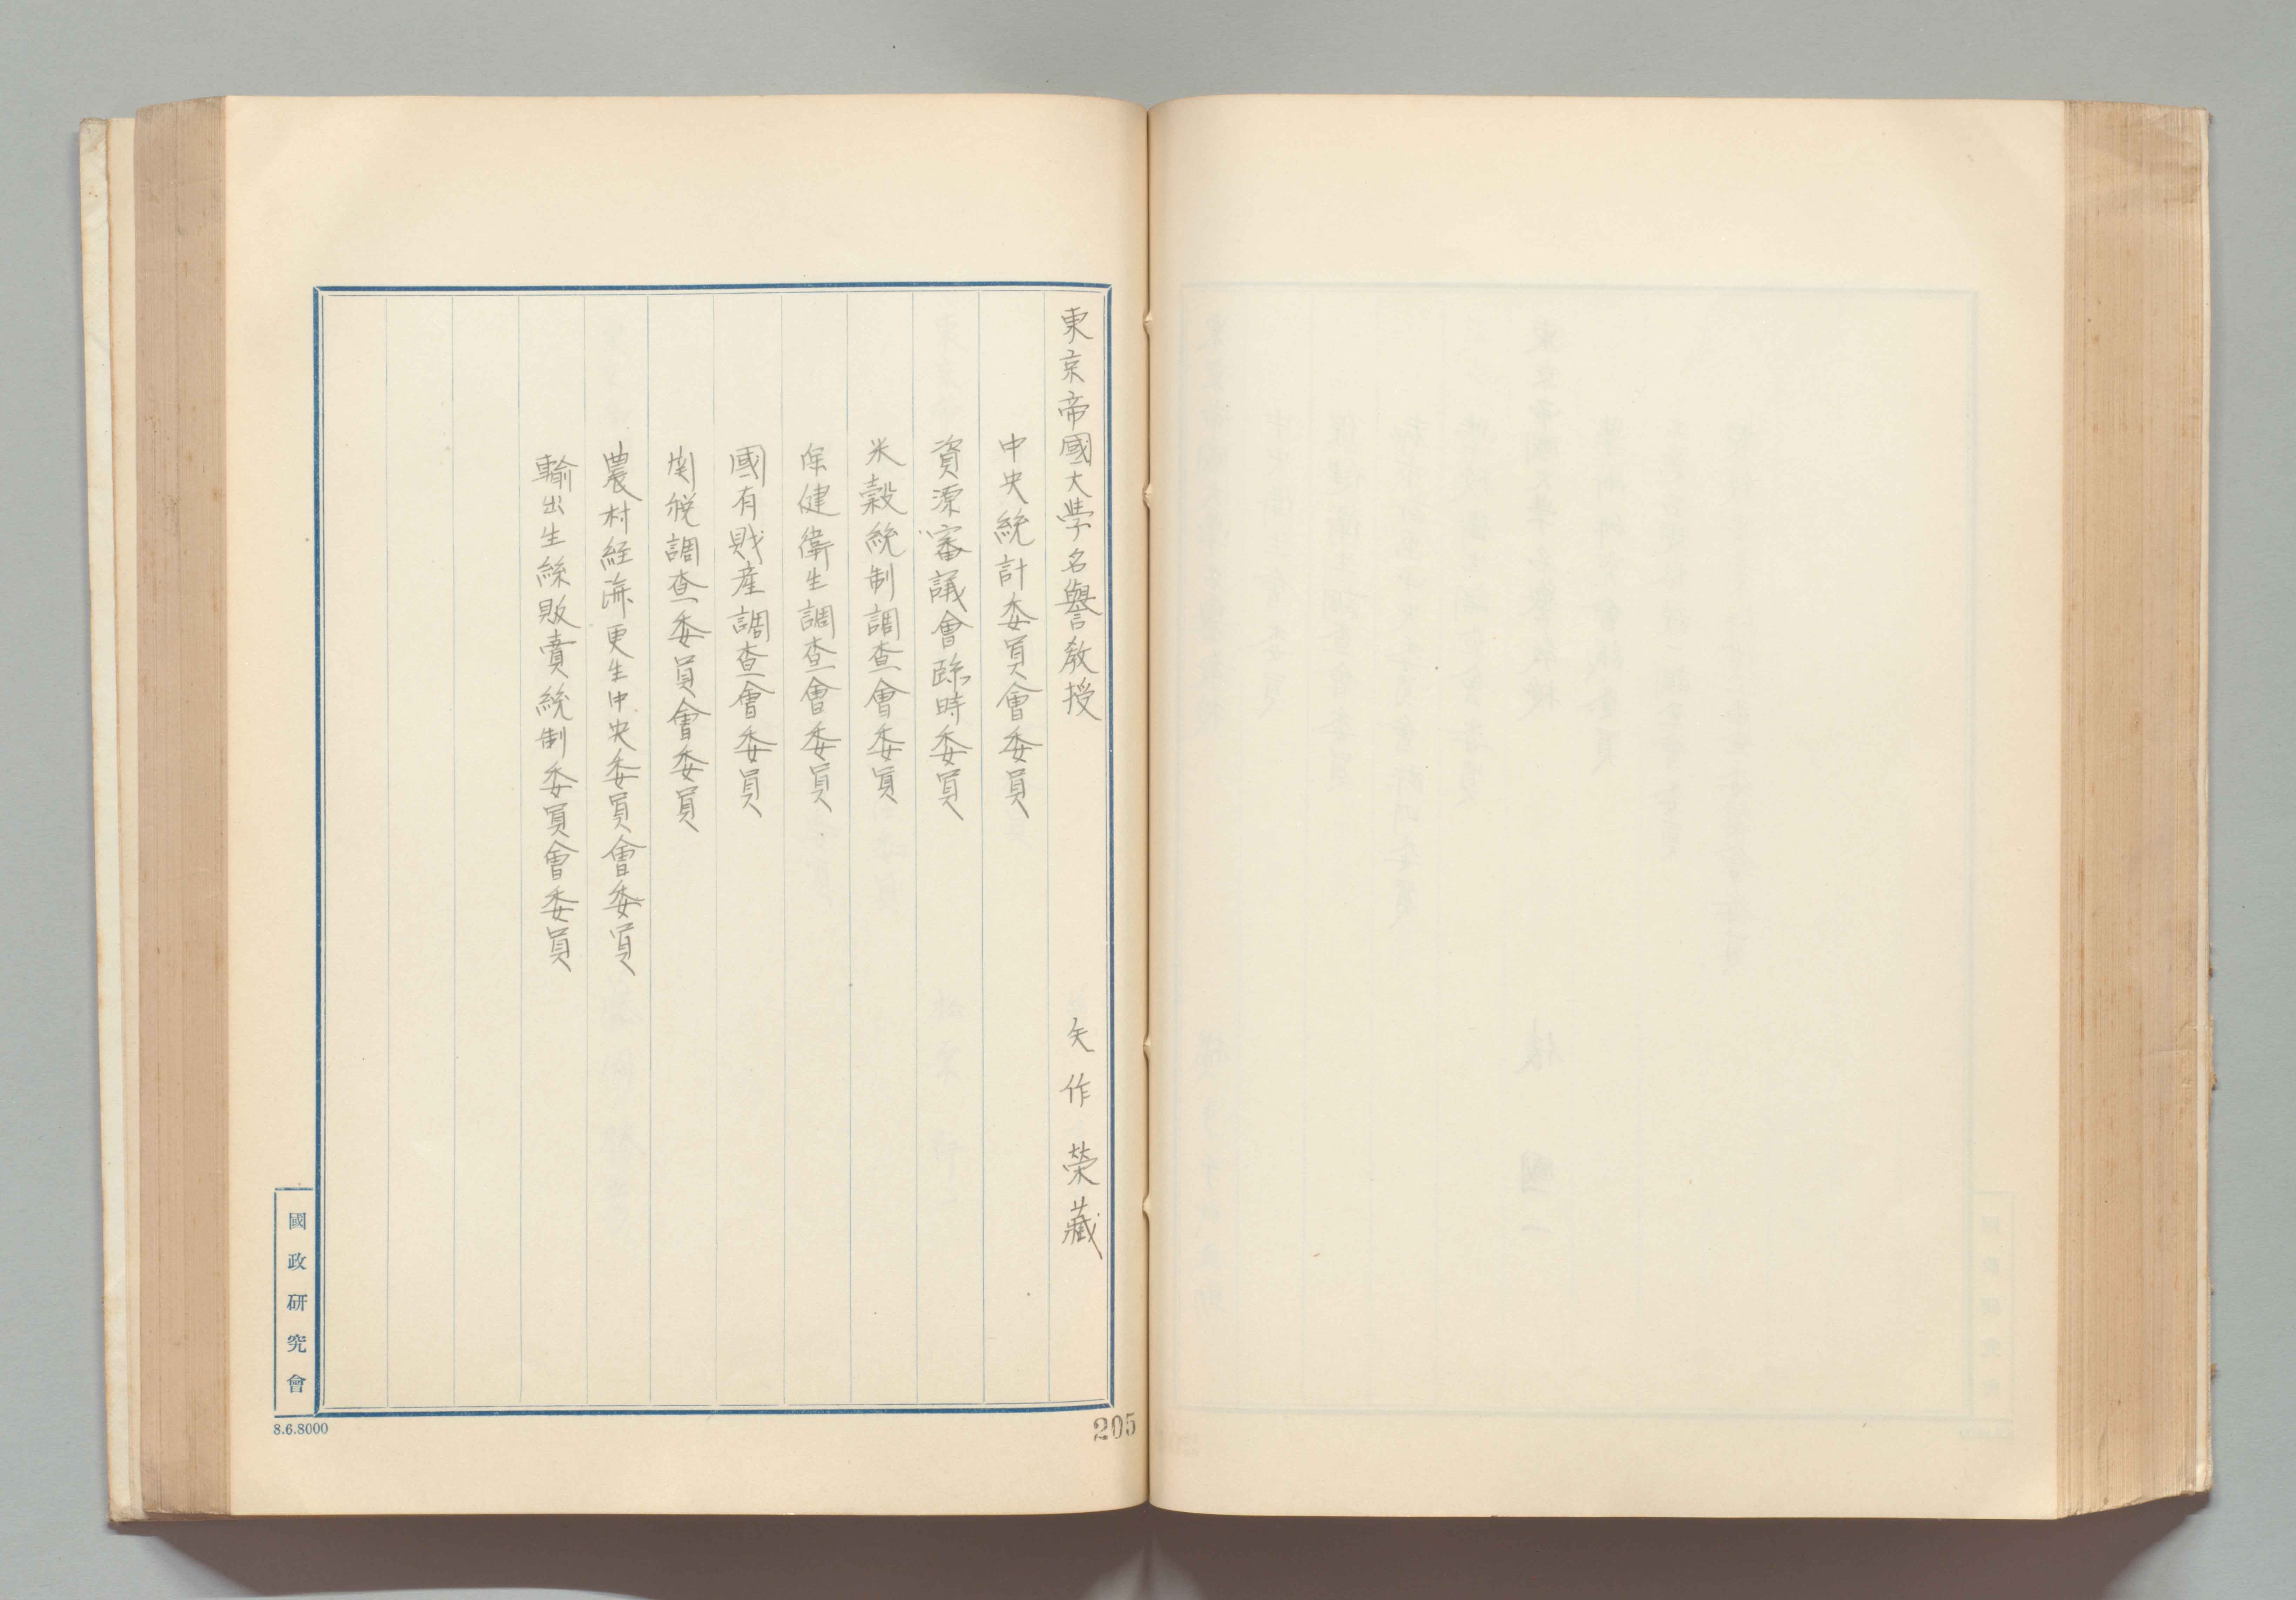 東京帝國大學名譽教授 矢作榮藏
中央統計委員會委員
資源審議會臨時委員
米穀統制調査會委員
保健衛生調査會委員
國有財産調査會委員
関税調査委員會委員
農村経済更生中央委員會委員
輸出生絲販賣統制委員會委員
國政研究會
8.6.8000
205